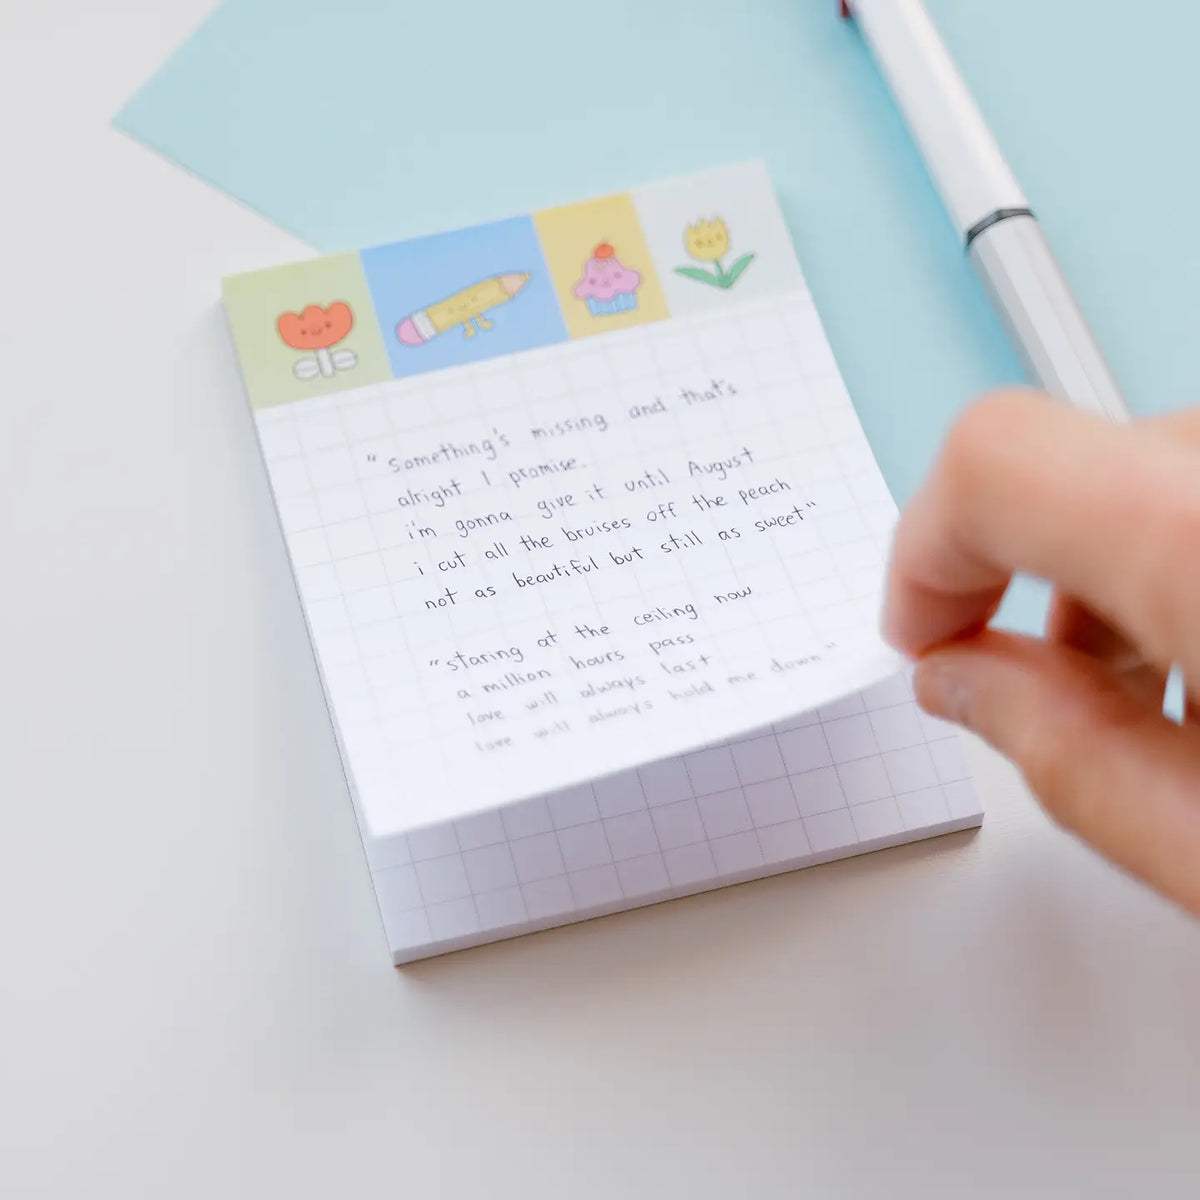 "something's missing and that's
alright I promise.
i'm gonna give it until August
i cut all the bruises off the peach
not as beautiful but still as sweet"
"staring at the ceiling now
a million hours pass
love will always last
love will always hold me down"